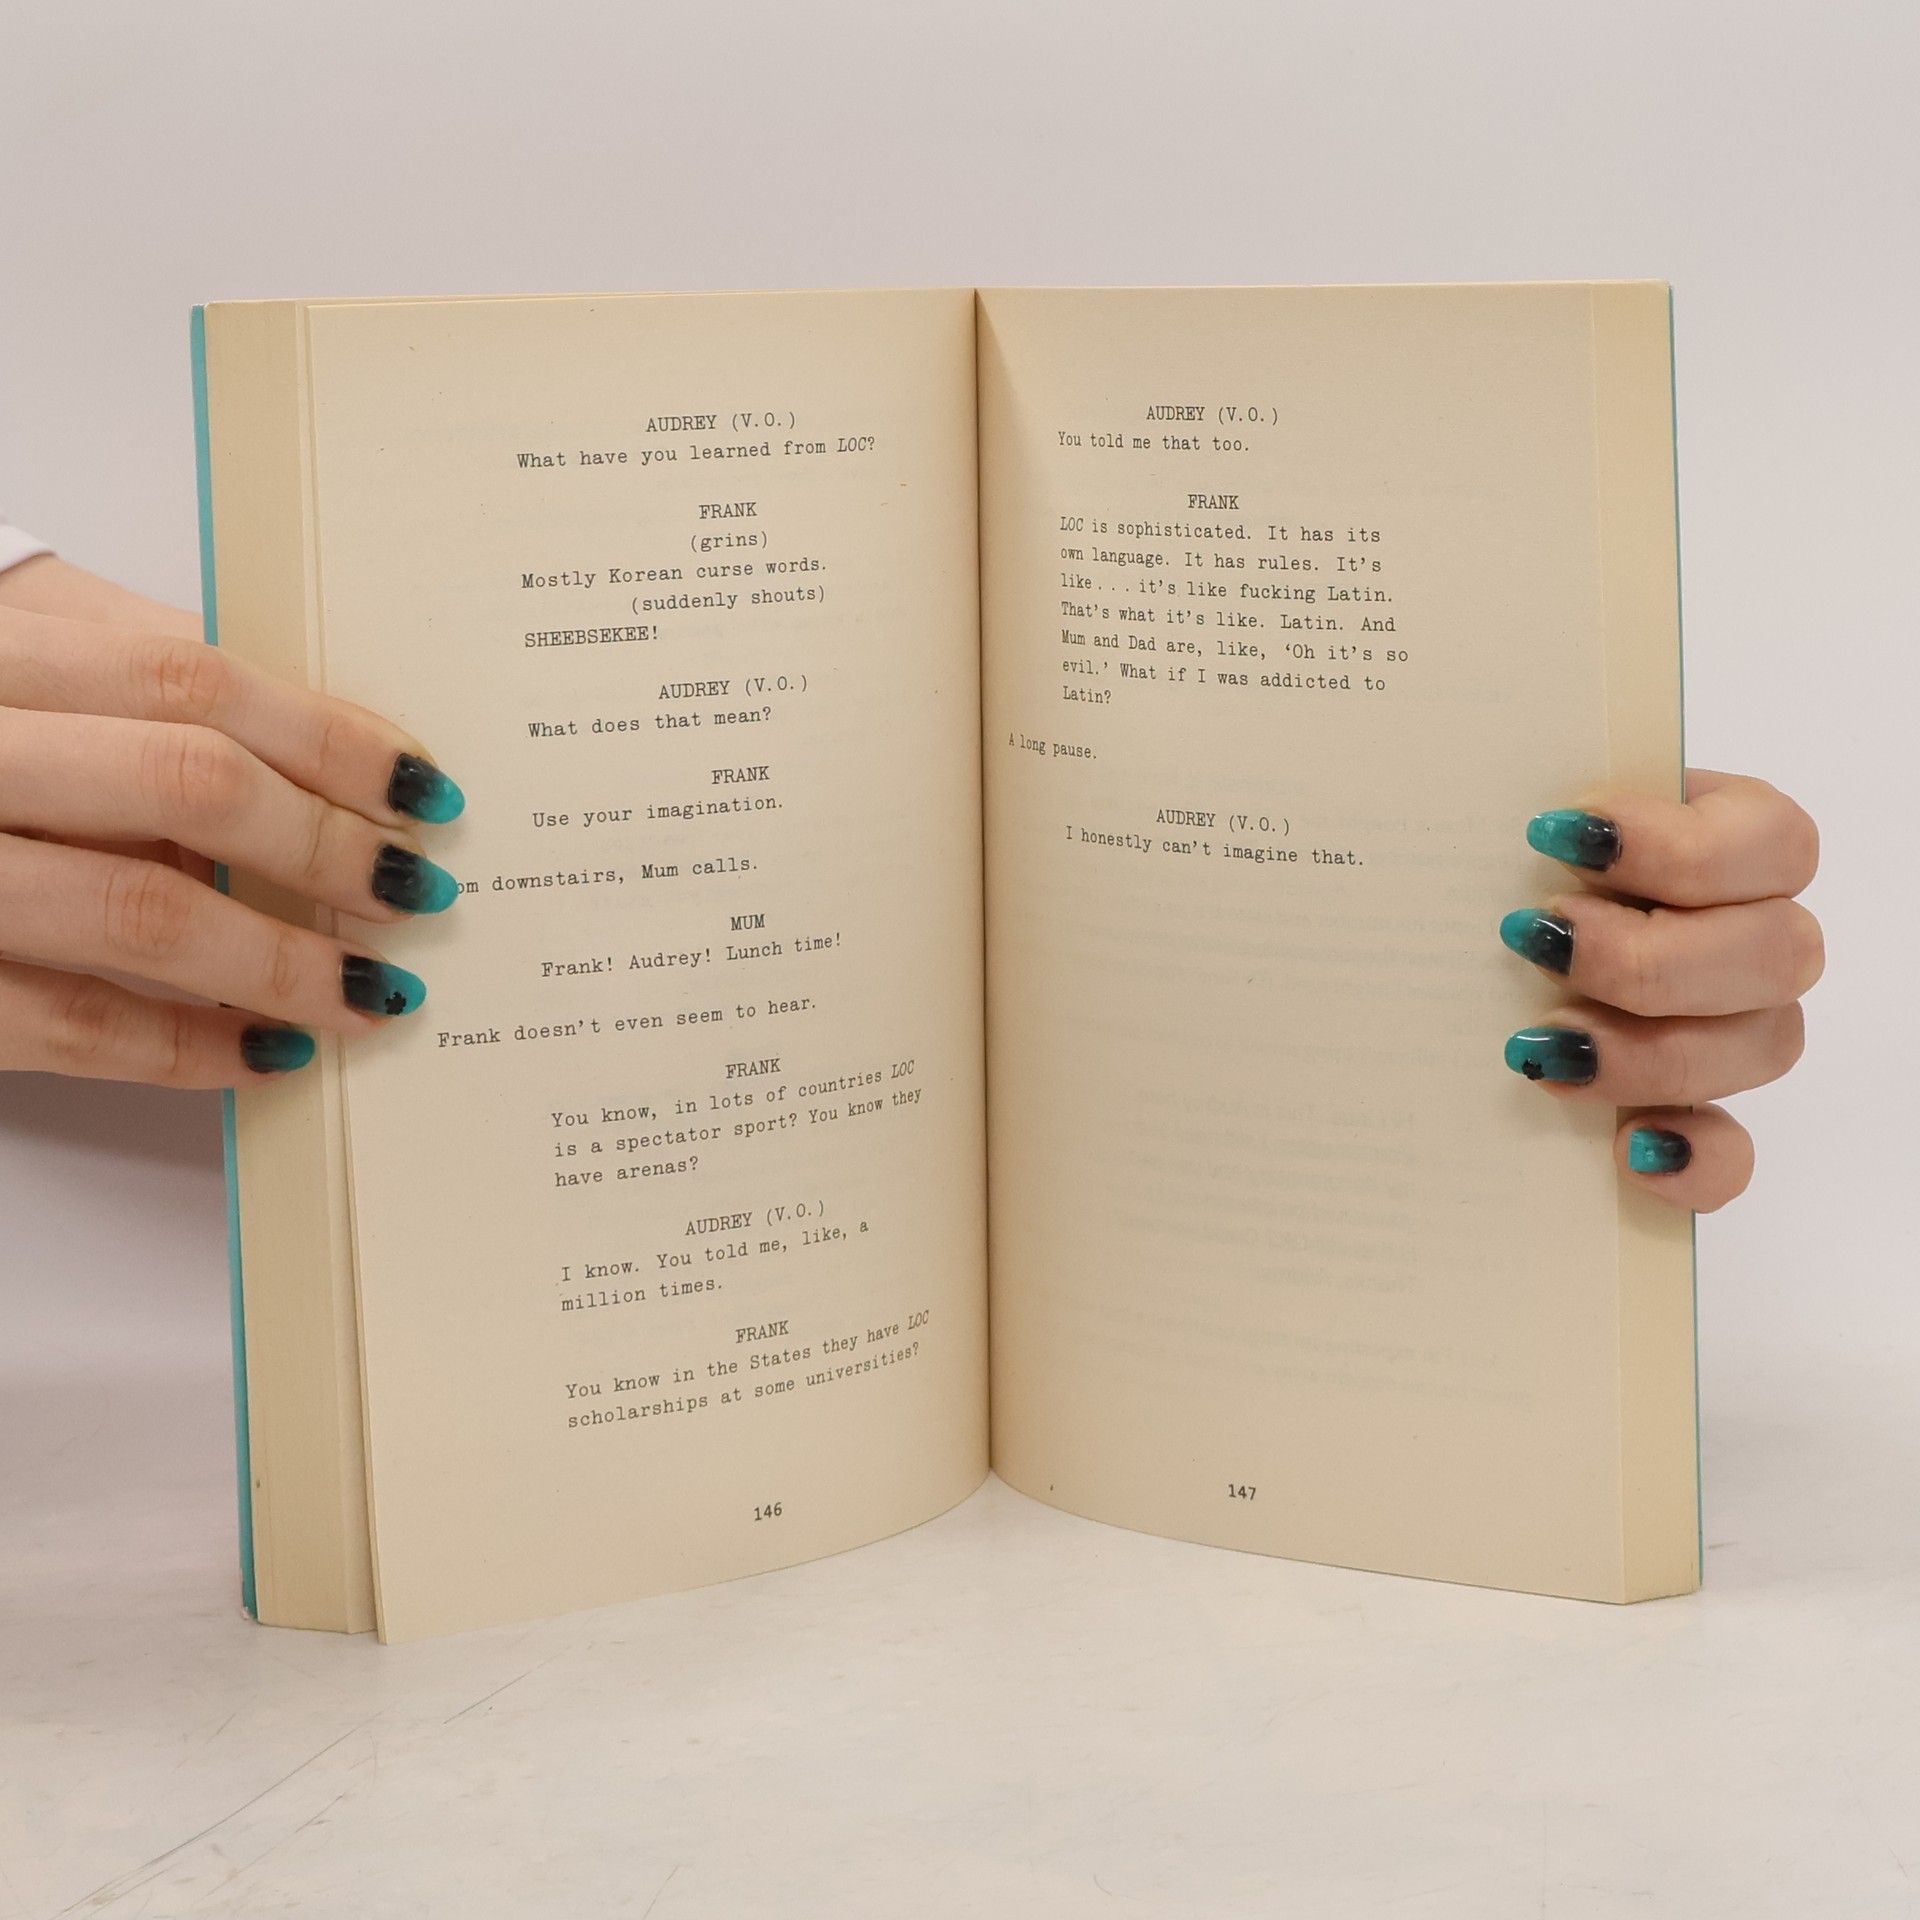 AUDREY (V.O.)
What have you learned from LOC?
FRANK
(grins)
Mostly Korean curse words.
(suddenly shouts)
SHEEBSEKEE!
AUDREY (V.O.)
What does that mean?
FRANK
Use your imagination.
downstairs, Mum calls.
MUM
Frank! Audrey! Lunch time!
Frank doesn't even seem to hear.
FRANK
You know, in lots of countries LOC
is a spectator sport? You know they
have arenas?
AUDREY (V.O.)
I know. You told me, like, a
million times.
FRANK
You know in the States they have LOC
scholarships at some universities?
146
AUDREY (V.O.)
You told me that too.
FRANK
LOC is sophisticated. It has its
own language. It has rules. It's
like... it's like fucking Latin.
That's what it's like. Latin. And
Mum and Dad are, like, 'Oh it's so
evil.' What if I was addicted to
Latin?
A long pause.
AUDREY (V.O.)
I honestly can't imagine that.
147